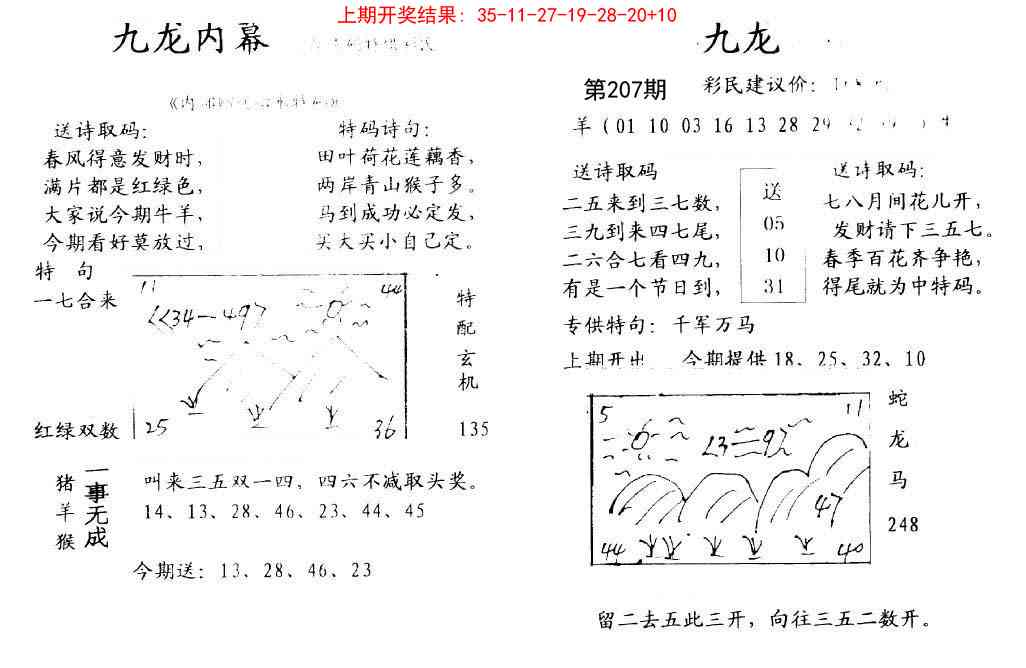 上期开奖结果：35-11-27-19-28-20+10
九龙内幕
送诗取码：
春风得意发财时，
满片都是红绿色，
大家说今期牛羊，
今期看好莫放过，
特码诗句：
田叶荷花莲藕香，
两岸青山猴子多。
马到成功必定发，
买大买小自己定。
特 句
一七合来
红绿双数
11
44
34—49
25
36
特
配
玄
机
135
猪
羊
猴
一事无成
叫来三五双一四，四六不减取头奖。
14、13、28、46、23、44、45
今期送：13、28、46、23
九龙
第207期
彩民建议价：
羊（01 10 03 16 13 28 29
送诗取码
二五来到三七数，
三九到来四七尾，
二六合七看四九，
有是一个节日到，
送
05
10
31
送诗取码：
七八月间花儿开，
发财请下三五七。
春季百花齐争艳，
得尾就为中特码。
专供特句：千军万马
上期开出 今期提供18、25、32、10
5
11
47
44
40
蛇
龙
马
248
留二去五此三开，向往三五二数开。